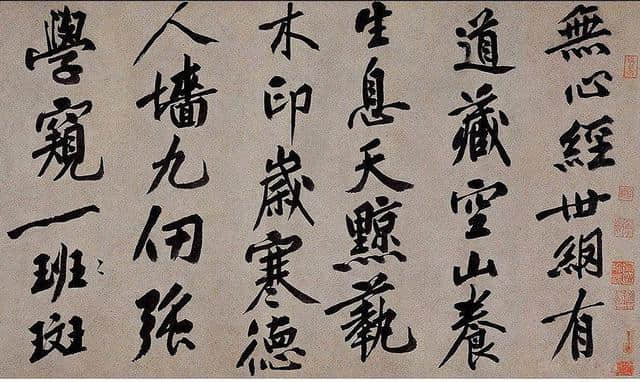 無心經世網有
道藏空山養
生息天黥蓺
木印歲寒德
人墻九仞强
學窺一班斑